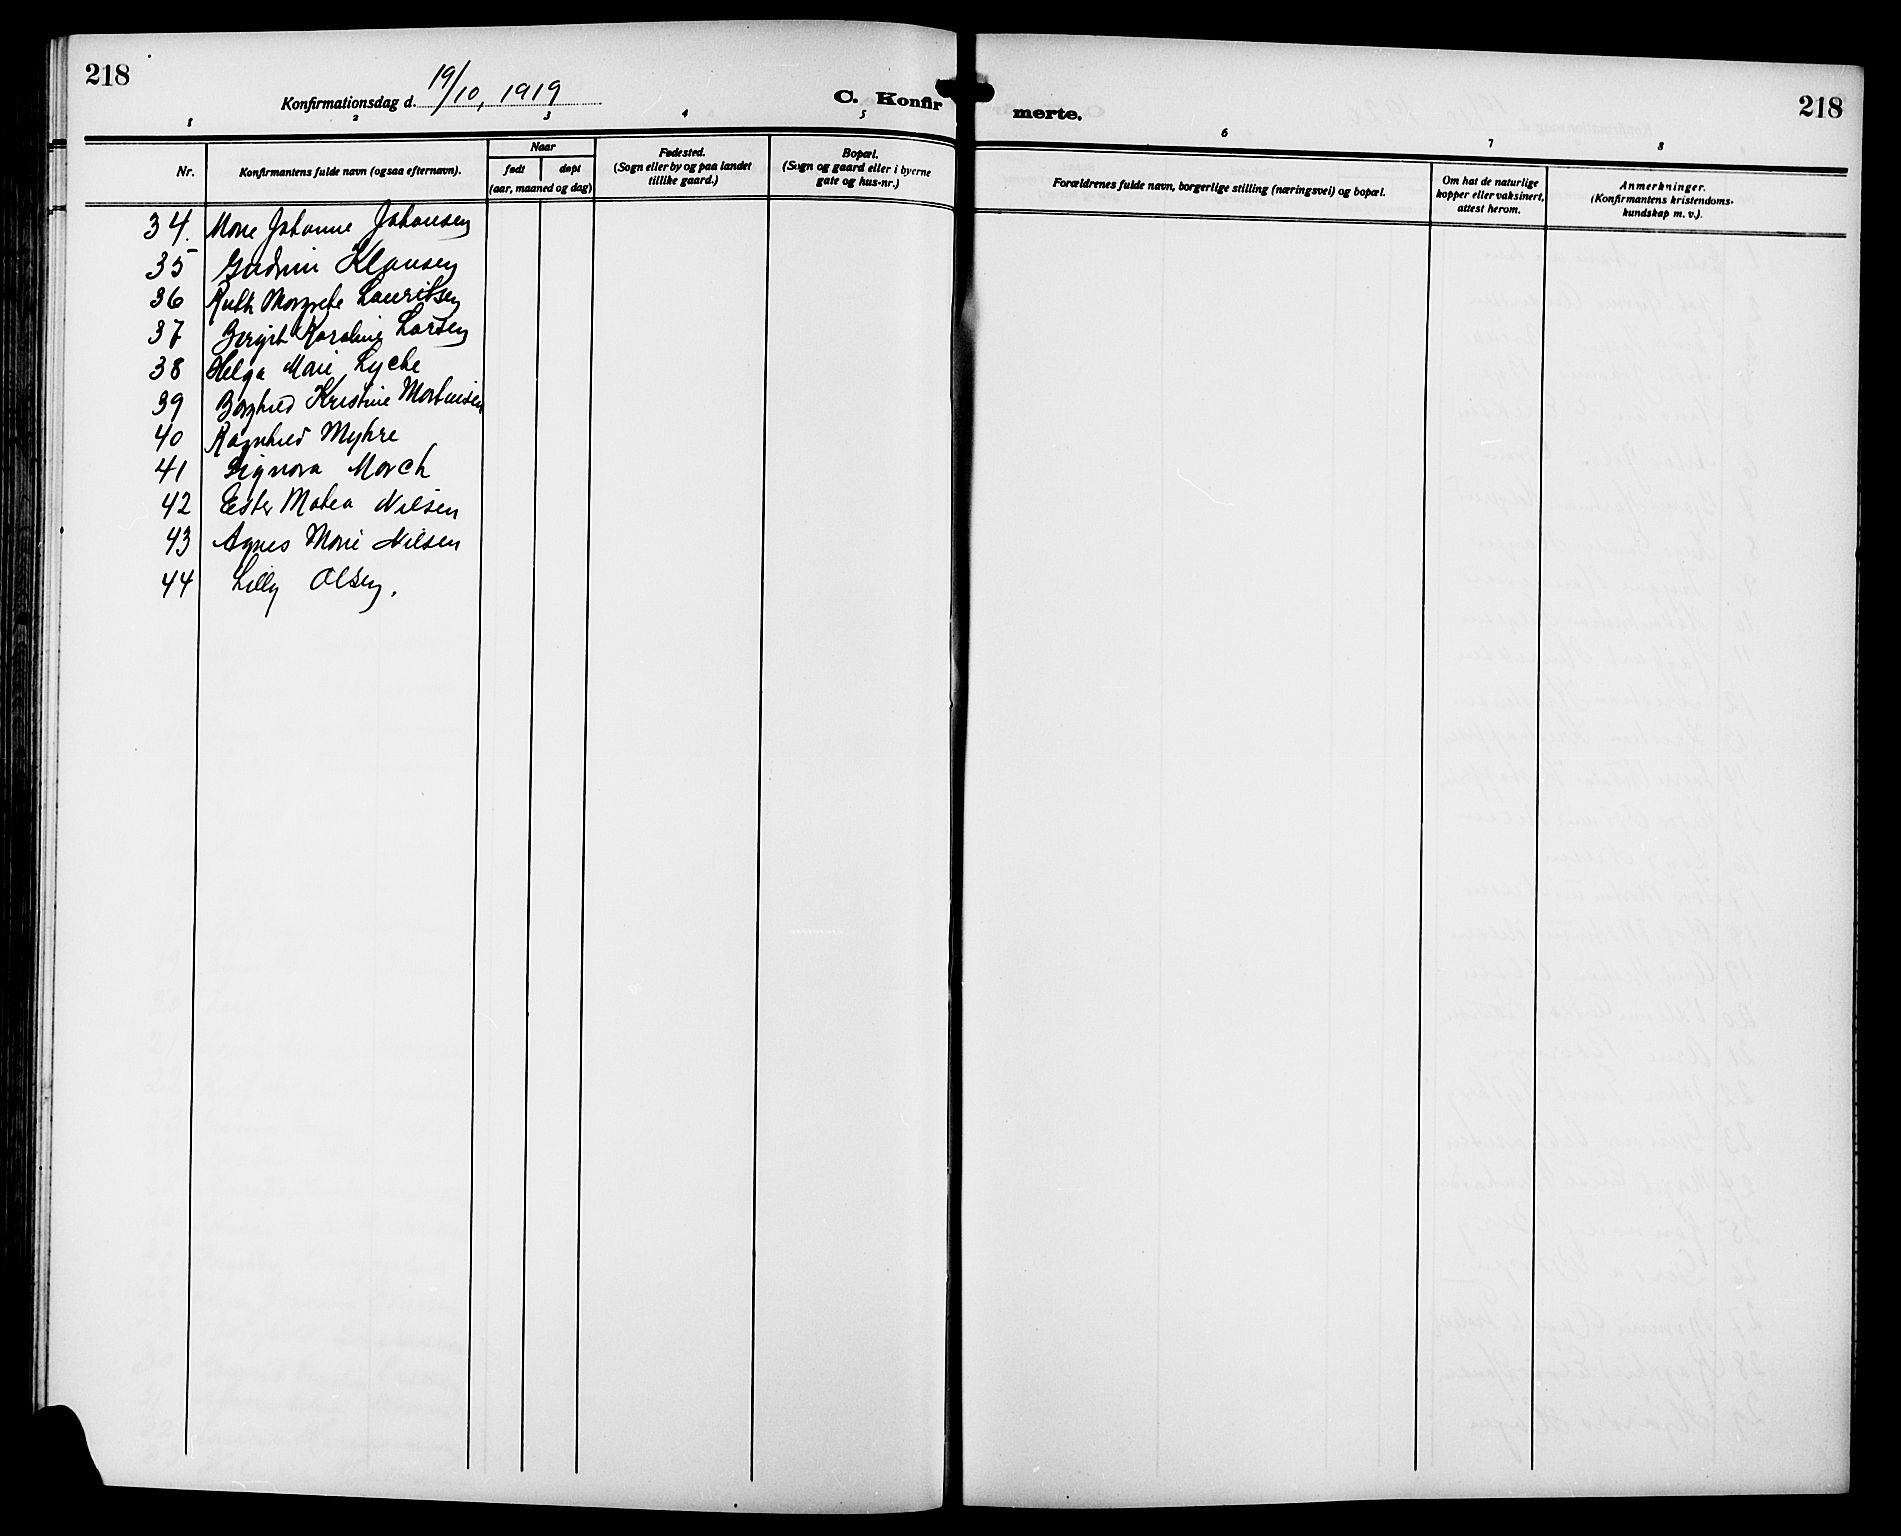 218
Konfirmationsdag d. 19/10, 1919
C. Konfir
merte.
218
1 2 3 4 5 6 7 8
Nr.
Konfirmantens fulde navn (ogsaa efternavn).
Naar
født døpt
(aar, maaned og dag)
Fødested.
(Sogn eller by og paa landet
tillike gaard.)
Bopæl.
(Sogn og gaard eller i byerne
gate og hus-nr.)
Forældrenes fulde navn, borgerlige stilling (næringsvei) og bopæl.
Om hat de naturlige
kopper eller vaksinert,
attest herom.
Anmerkninger.
(Konfirmantens kristendoms-
kundskap m. v.).
34. Marie Johanne Johansen
35 Gudrun Klausen
36 Ruth Margrete Lauritsen
37 Birgit Karoline Larsen
38 Helga Marie Lyche
39 Borghild Kristine Mortensen
40 Ragnhild Myhre
41 Signora Mørch
42 Ester Matea Nilsen
43 Agnes Marie Nilsen
44 Lilly Olsen.